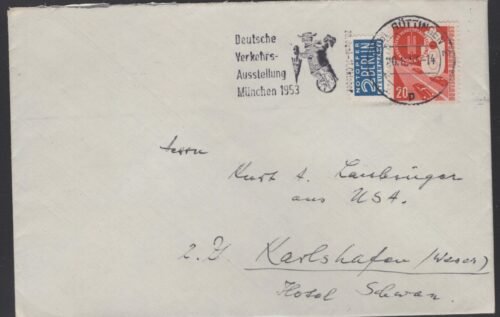 Deutsche
Verkehrs-
Ausstellung
München 1953
NOTOPFER
2 BERLIN
STEUERMARKE
GÖTTINGEN
-14
p
20
Herrn
Kurt A.
aus USA.
z. Z. Karlshafen (Weser)
Hotel Schwan.